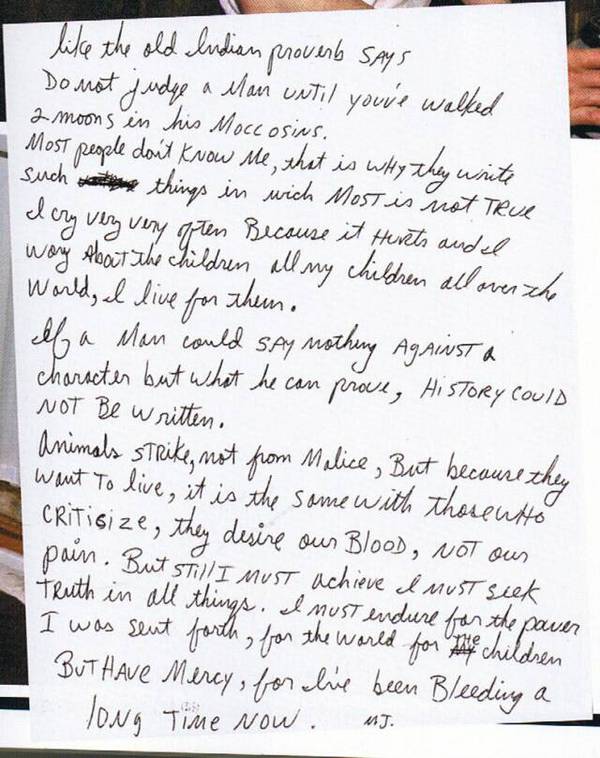 like the old Indian proverb SAYS
Do not judge a Man UNTil you've walked
2 moons in his Moccosins.
MOST people don't KNOW Me, that is WHY they write
Such things in wich MOST is not TRUE
I cry very very often Because it HURTS and I
wory About the children all my children all over the
World, I live for them.
If a Man could SAY nothing AGAINST a
character but what he can prove, HiSTORY COULD
NOT Be written.
Animals STRike, not from Malice, But because they
want To live, it is the same with those WHO
CRiTisize, they desire our BlOOD, NOT our
pain. But STill I MUST achieve I MUST seek
TRuth in all things. I MUST endure for the power
I was sent forth, for the world for THe children
BuT HAVe Mercy, for I've been Bleeding a
lONg TiMe NOW. MJ.